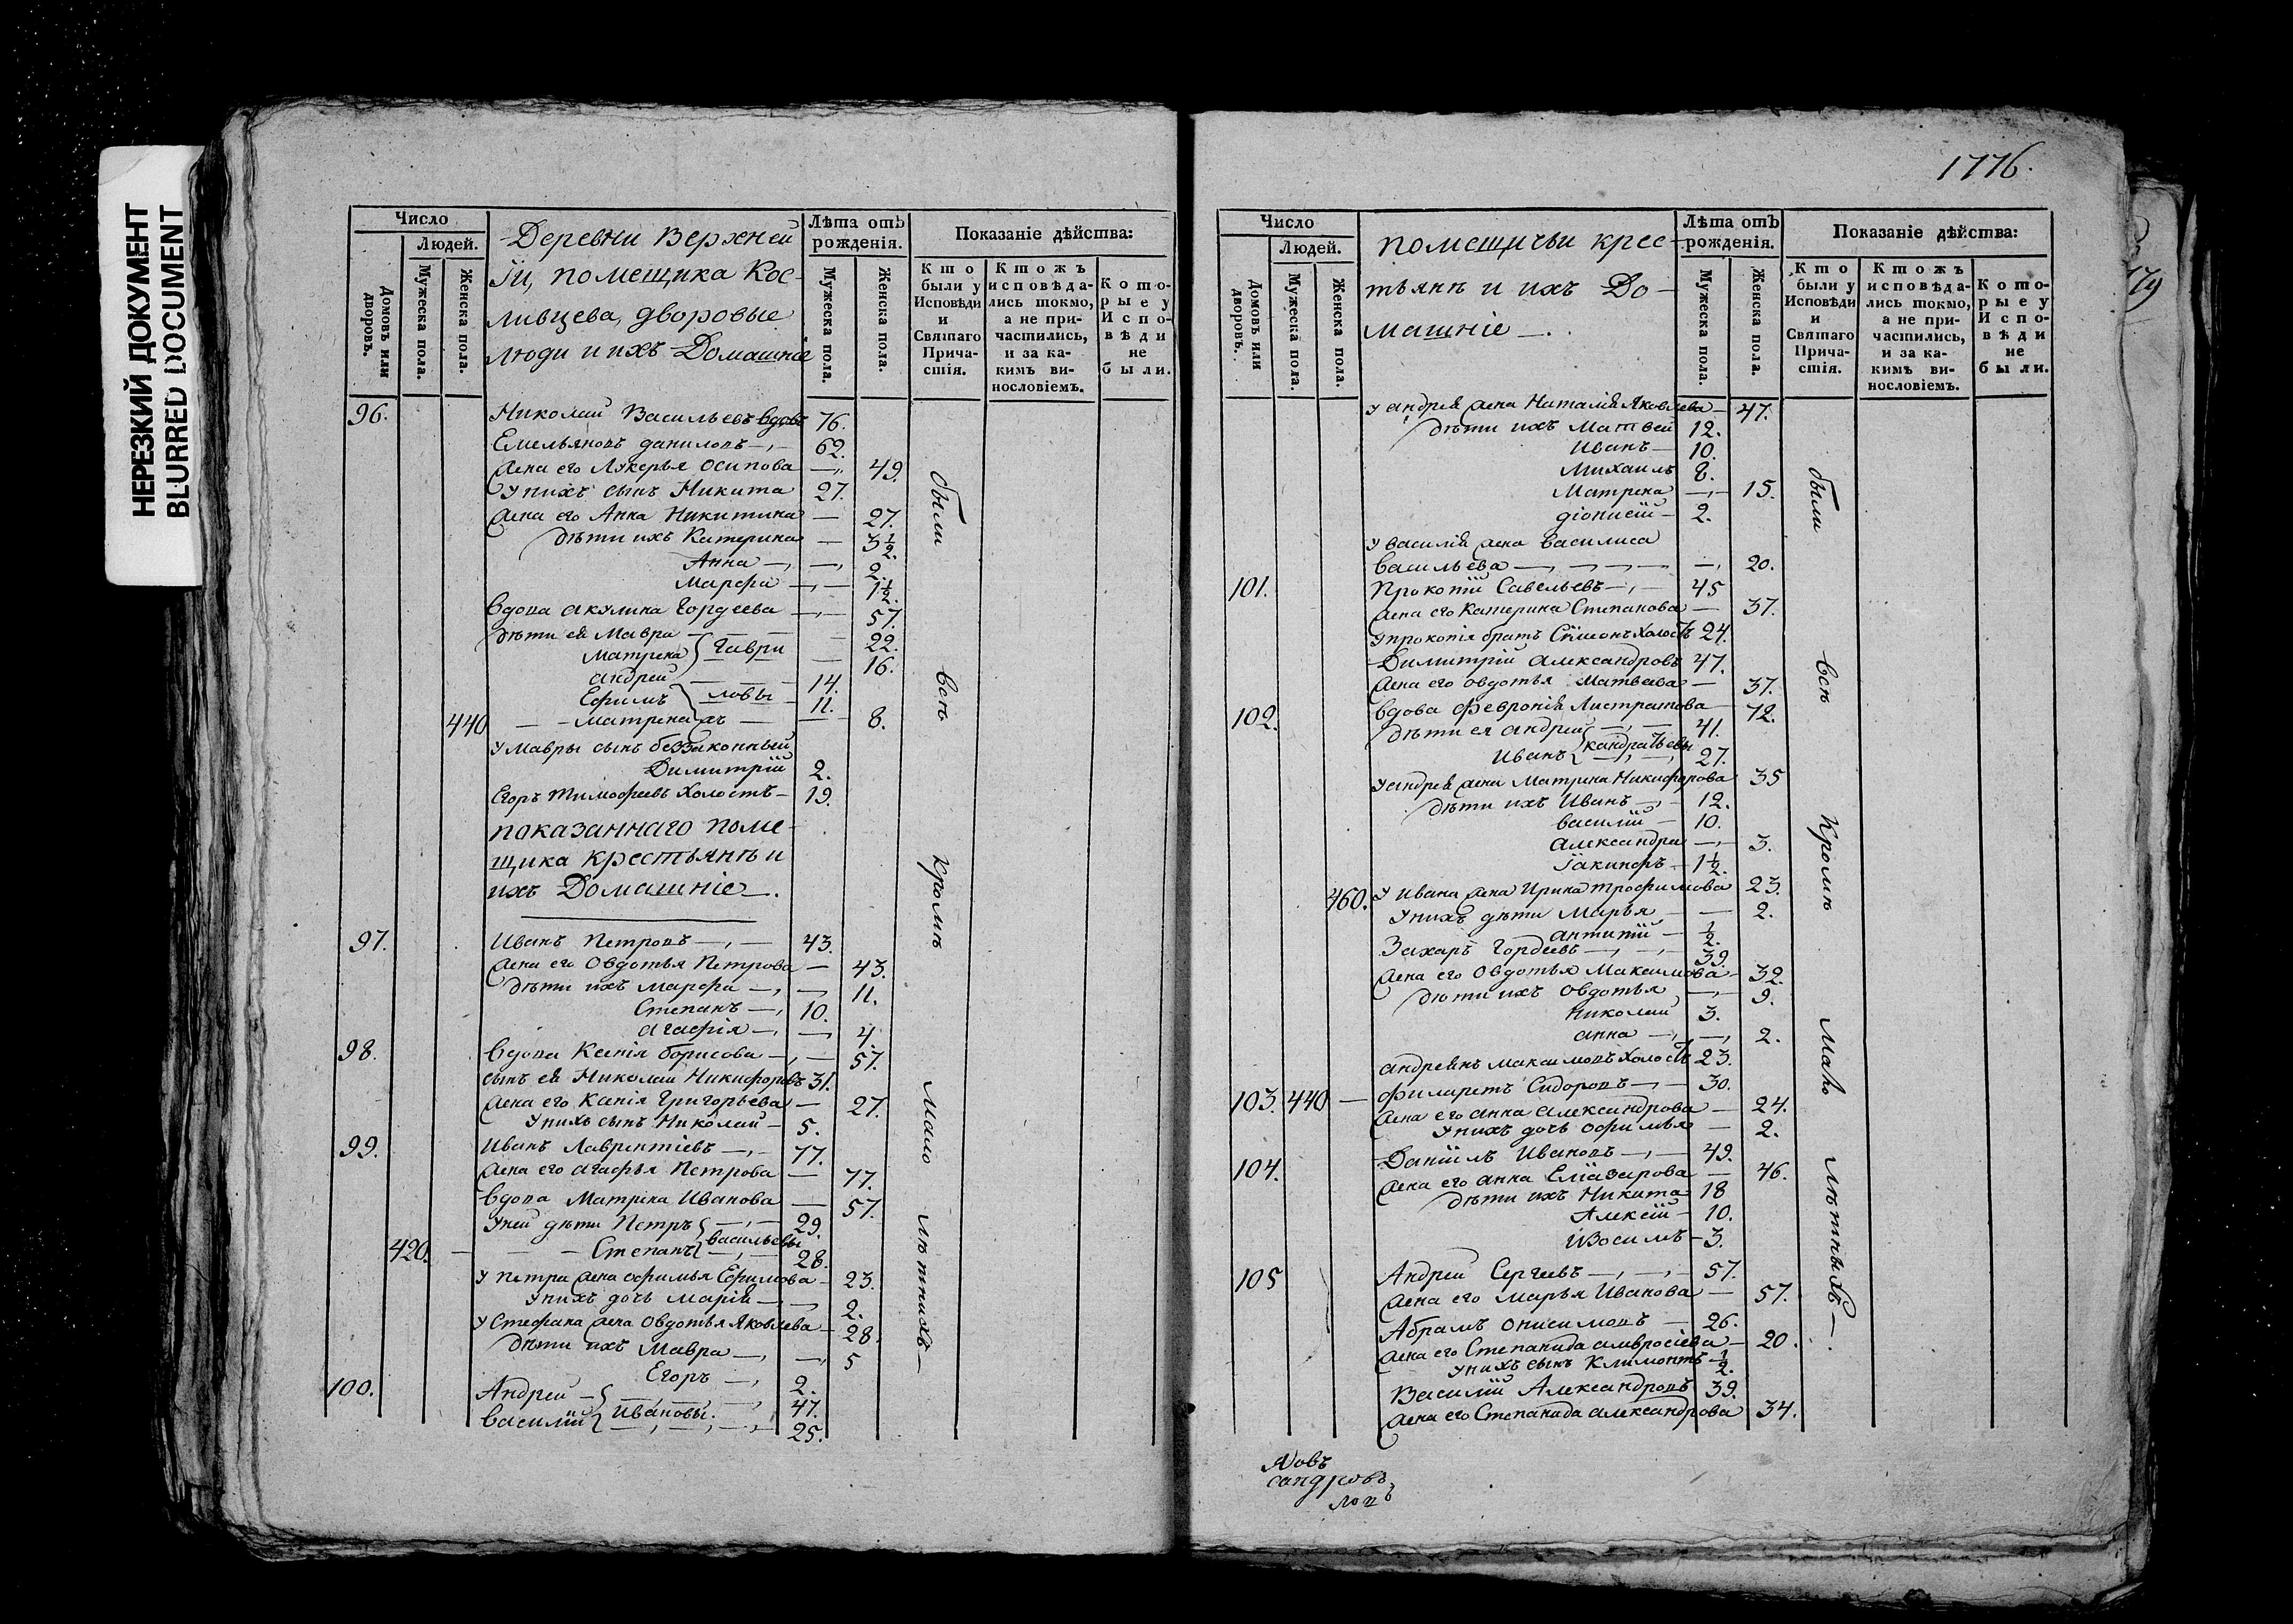 НЕРЕЗКИЙ ДОКУМЕНТ
BLURRED DOCUMENT
Число
Людей.
Домовъ или дворовъ.
Мужеска пола.
Женска пола.
Деревни Верхней
помещика Кос-
ливцева, дворовые
люди и ихъ Домашніе
Лѣта отъ рожденія.
Мужеска пола.
Женска пола.
Показаніе дѣйства:
Кто были у Исповѣди и Святаго Причастія.
Ктожъ исповѣдались токмо, а не причастились, и за какимъ винословіемъ.
Которые у Исповѣди не были.
96. Николай Васильевъ вдовъ 76.
Емельянъ даниловъ 62.
жена его Лукерья Осипова 49.
У нихъ сынъ Никита 27.
жена его Анна Никитина 27.
дѣти ихъ Катерина 3 1/2.
Анна 2.
Марфа 1 1/2.
вдова акулина Гордеева 57.
дѣти ея Мавра 22.
Матрена Гаври 16.
андрей 14.
Ефимъ ловы 11.
440 Матрена 8.
у Мавры сынъ беззаконный
Димитрій 2.
Егоръ Тимофеевъ холостъ 19.
показаннаго поме-
щика крестьянѣ и
ихъ Домашніе.
97. Иванъ Петровъ 43.
жена его Овдотья Петрова 43.
дѣти ихъ Марфа 11.
Степанъ 10.
агафія 4.
98. вдова Ксенія борисова 57.
сынъ ея Николай Никифоровъ 31.
жена его Ксенія Григорьева 27.
У нихъ сынъ Николай 5.
99. Иванъ Лаврентіевъ 77.
жена его агафья Петрова 77.
вдова Матрена Иванова 57.
У ней дѣти Петръ 29.
васильевы
420. Степанъ 28.
у Петра жена офимья Ефимова 23.
У нихъ дочь Марія 2.
у Стефана жена Овдотья Яковлева 28.
дѣти ихъ Мавра 5
Егоръ 2.
100. Андрей 47.
Ивановы.
василій 25.
были
всѣ
кромѣ
мало
лѣтнихъ
1776.
Число
Людей.
Домовъ или дворовъ.
Мужеска пола.
Женска пола.
помещичьи крес-
тьянѣ и ихъ До-
машніе.
Лѣта отъ рожденія.
Мужеска пола.
Женска пола.
Показаніе дѣйства:
Кто были у Исповѣди и Святаго Причастія.
Ктожъ исповѣдались токмо, а не причастились, и за какимъ винословіемъ.
Которые у Исповѣди не были.
у андрея жена Наталія Яковлева 47.
дѣти ихъ Матвей 12.
Иванъ 10.
Михаилъ 8.
Матрена 15.
діонисій 2.
у василія жена василиса
васильева 20.
101. Прокопій Савельевъ 45
жена его Катерина Степанова 37.
у прокопія братъ Сімеонъ холостъ 24.
Димитрій александровъ 47.
жена его овдотья Матвева 37.
102. вдова Февронія Листратова 72.
дѣти ея андрей 41.
кандратьевы
Иванъ 27.
у андрея жена Матрена Никифорова 35
дѣти ихъ Иванъ 12.
василій 10.
александра 3.
Іакинфъ 1 1/2.
460. у Ивана жена Ирина трофимова 23.
У нихъ дѣти Марья 2.
антипій 1/2.
Захаръ Гордеевъ 39.
жена его Овдотья Максимова 32.
дѣти ихъ Овдотья 9.
Николай 3.
анна 2.
андреянъ максимовъ холостъ 23.
103. 440 филаретъ Сидоровъ 30.
жена его анна александрова 24.
У нихъ дочь офимья 2.
104. Даніилъ Ивановъ 49.
жена его анна Еліазарова 46.
дѣти ихъ Никита 18
Алексій 10.
Изосимъ 3.
105 Андрей Сергеевъ 57.
жена его Марья Иванова 57.
Абрамъ Онисимовъ 26.
жена его Степанида амвросіева 20.
У нихъ сынъ Климонтъ 1/2.
Василій Александровъ 39.
жена его Степанида александрова 34.
были
всѣ
кромѣ
мало
лѣтныхъ
сандровъ